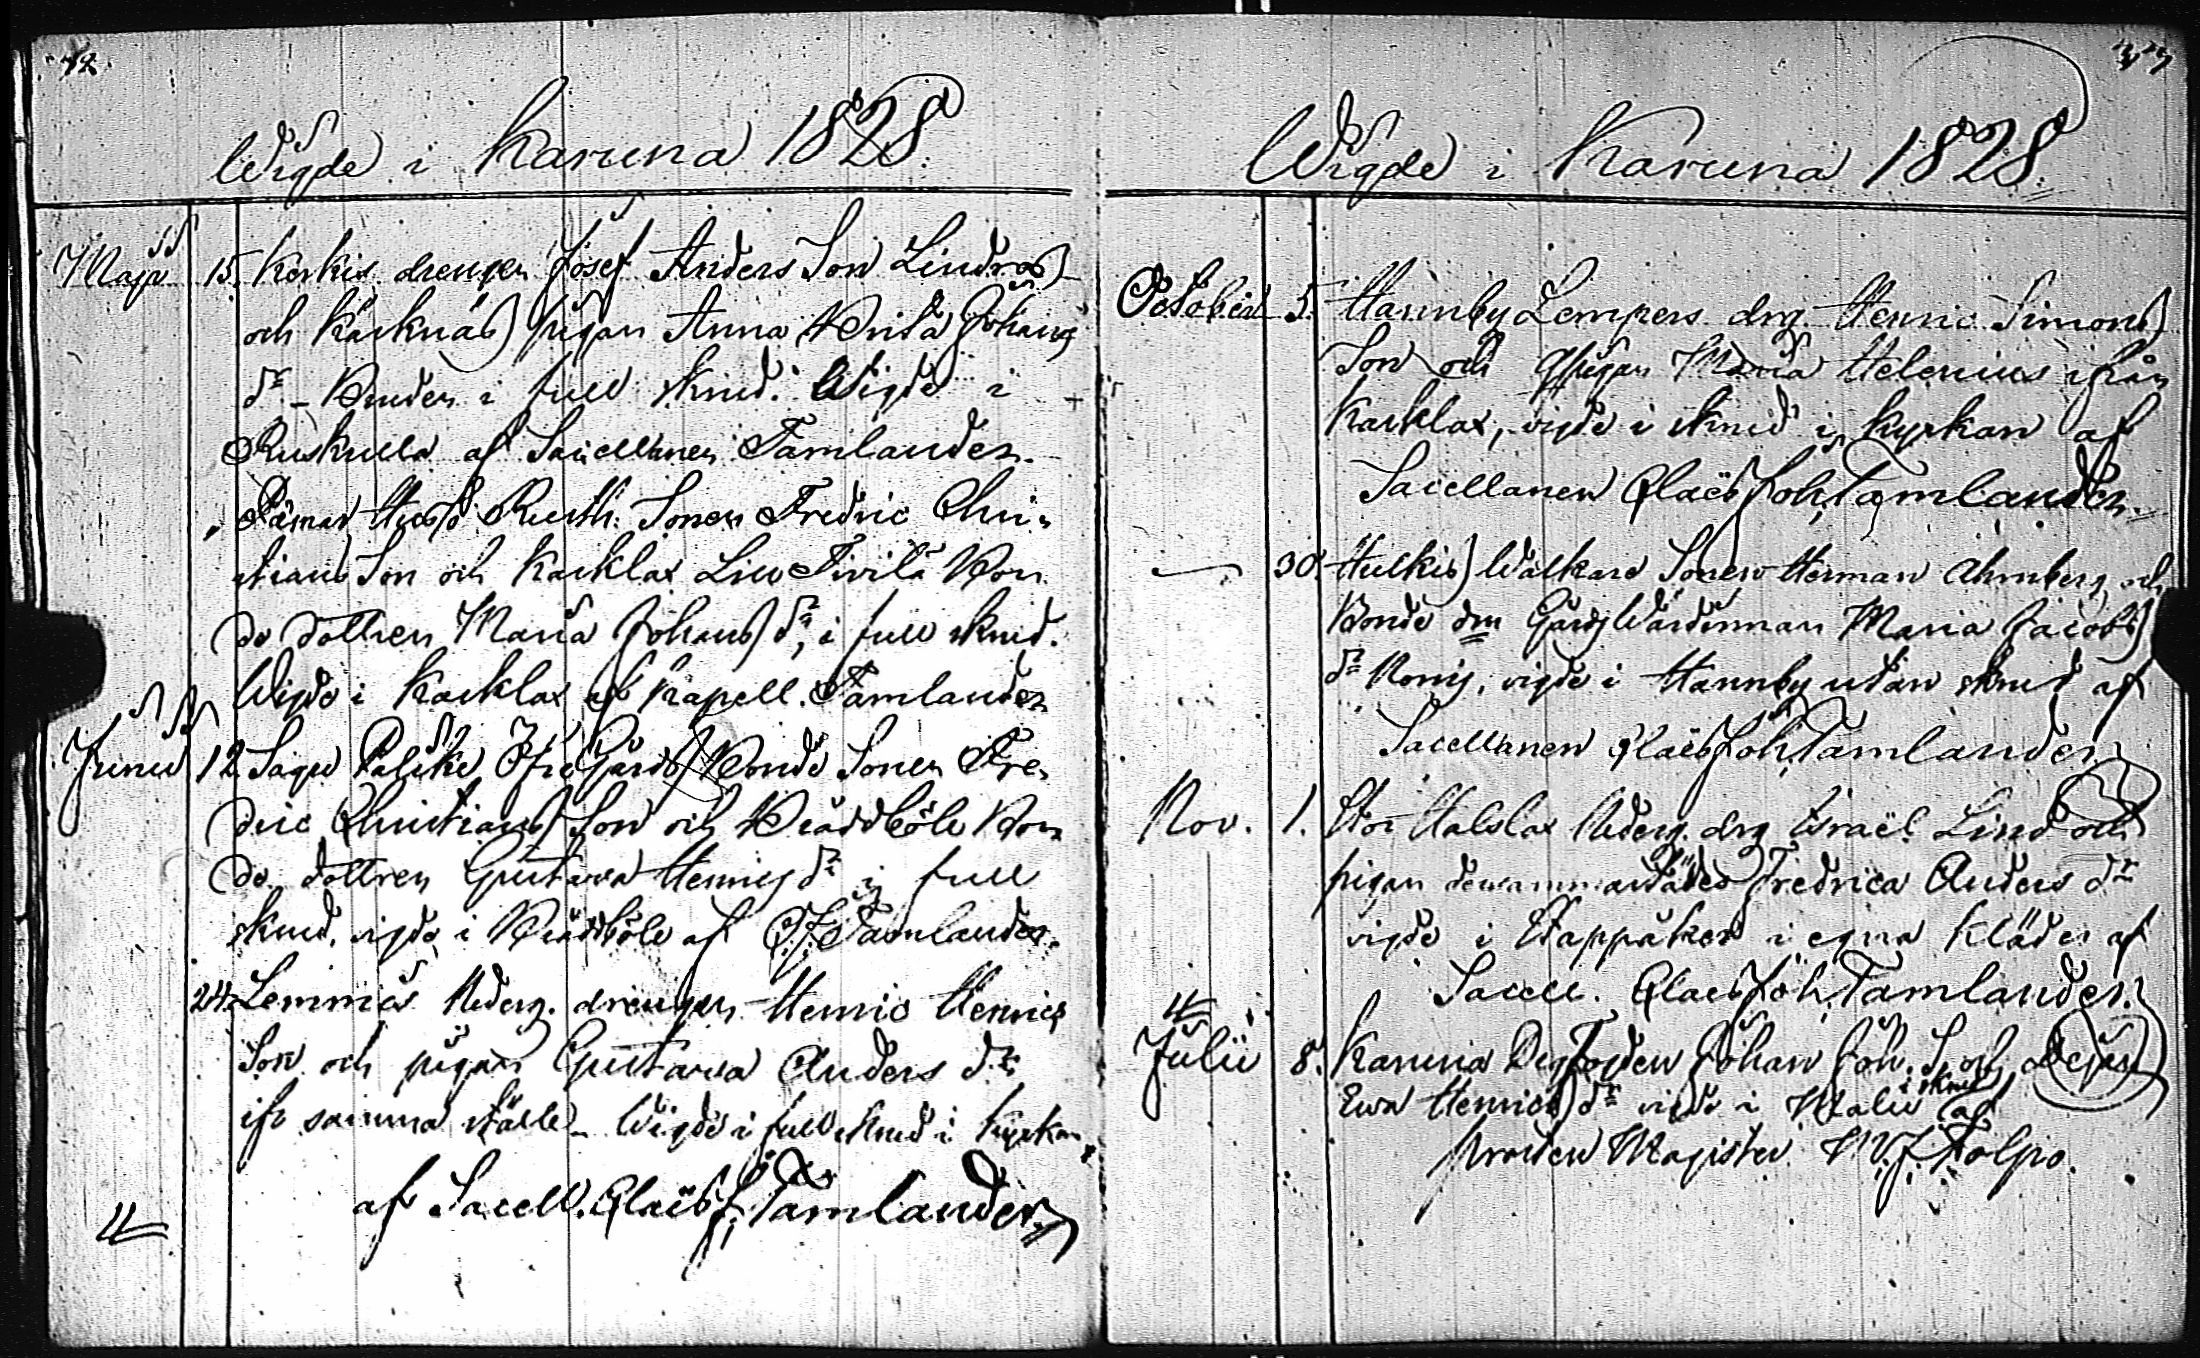 Wigde i Karuna 1828.
Maji 15. Kerkis drengen Josef Anders Son Lindros
och Karknäs pigan Anna Brita Johans
dr - Bruden i full skrud. Wigde i
Ruskulla af Sacellanen Tamlander.
Pämar Rusth. Sonen Fredric Chri-
stians Son och Karklax Bon
de dottren Maria Johans dr, i full skrud.
Wigde i Karklax af Kapell. Tamlander
Junii 12 Sagu Bonde Sonen Fre-
dric Christians Son och Brädböle Bon-
de dottren Gustava Henrics dr i full
skrud, vigde i Brädböle af C. J. Tamlander.
24. Lemmäs drengen Henric Henrics
Son och pigan Gustava Anders dr
ifr samma ställe - Wigde i full skrud i kyrkan
af Sacell. Claës J. Tamlander
Wigde i Karuna 1828.
October 5. Hannby Lempers drg. Henric Simons
Son och Pigan Maria Helenius ifrån
Karklax, vigde i skrud i kyrkan af
Sacellanen Claës Joh. Tamlander.
30. Hulkis Sonen Herman Ahrnberg och
Bonde Maria Jacobs
dr vigde i Hannby utan skrud af
Sacellanen Claës Joh. Tamlander
Nov. 1. Stor Halslax drg Israël Lind och
pigan Fredrica Anders dr
vigde i i egna kläder af
Sacell. Claës Joh. Tamlander.
Julii 8. Karuna Johan Joh. S. och
Ewa Henrics dr vigde i af
i skrud
Prosten Magister